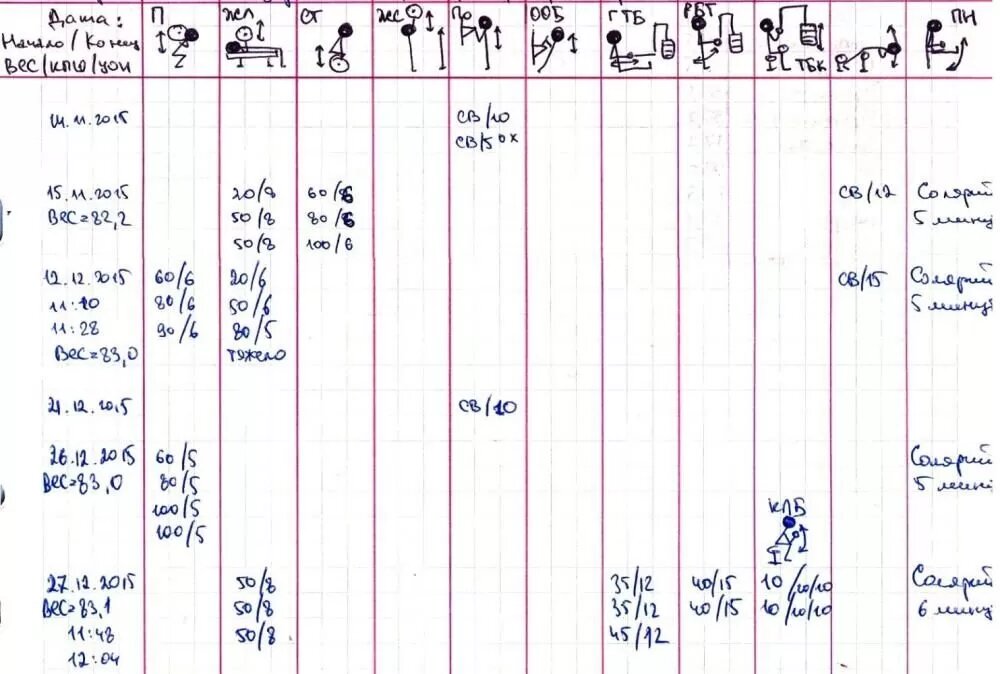 Дата: П ЖЛ СТ ЖС По ООБ ГТБ РБТ ПН
Начало / Конец ТБК
ВЕС/КПШ/УОИ
14.11.2015 СВ/10
СВ/5 ОХ
15.11.2015 20/8 60/6 СВ/12 Солярий
ВЕС=82,2 50/8 80/6 5 минут
50/8 100/6
12.12.2015 60/6 20/6 СВ/15 Солярий
11:10 80/6 50/6 5 минут
11:28 90/6 80/5
ВЕС=83,0 тяжело
21.12.2015 СВ/10
26.12.2015 60/5 Солярий
ВЕС=83,0 80/5 5 мин
100/5 КЛБ
100/5
27.12.2015 50/8 35/12 40/15 10/10/10 Солярий
ВЕС=83,1 50/8 35/12 40/15 10/10/10 6 минут
11:48 50/8 45/12
12:04